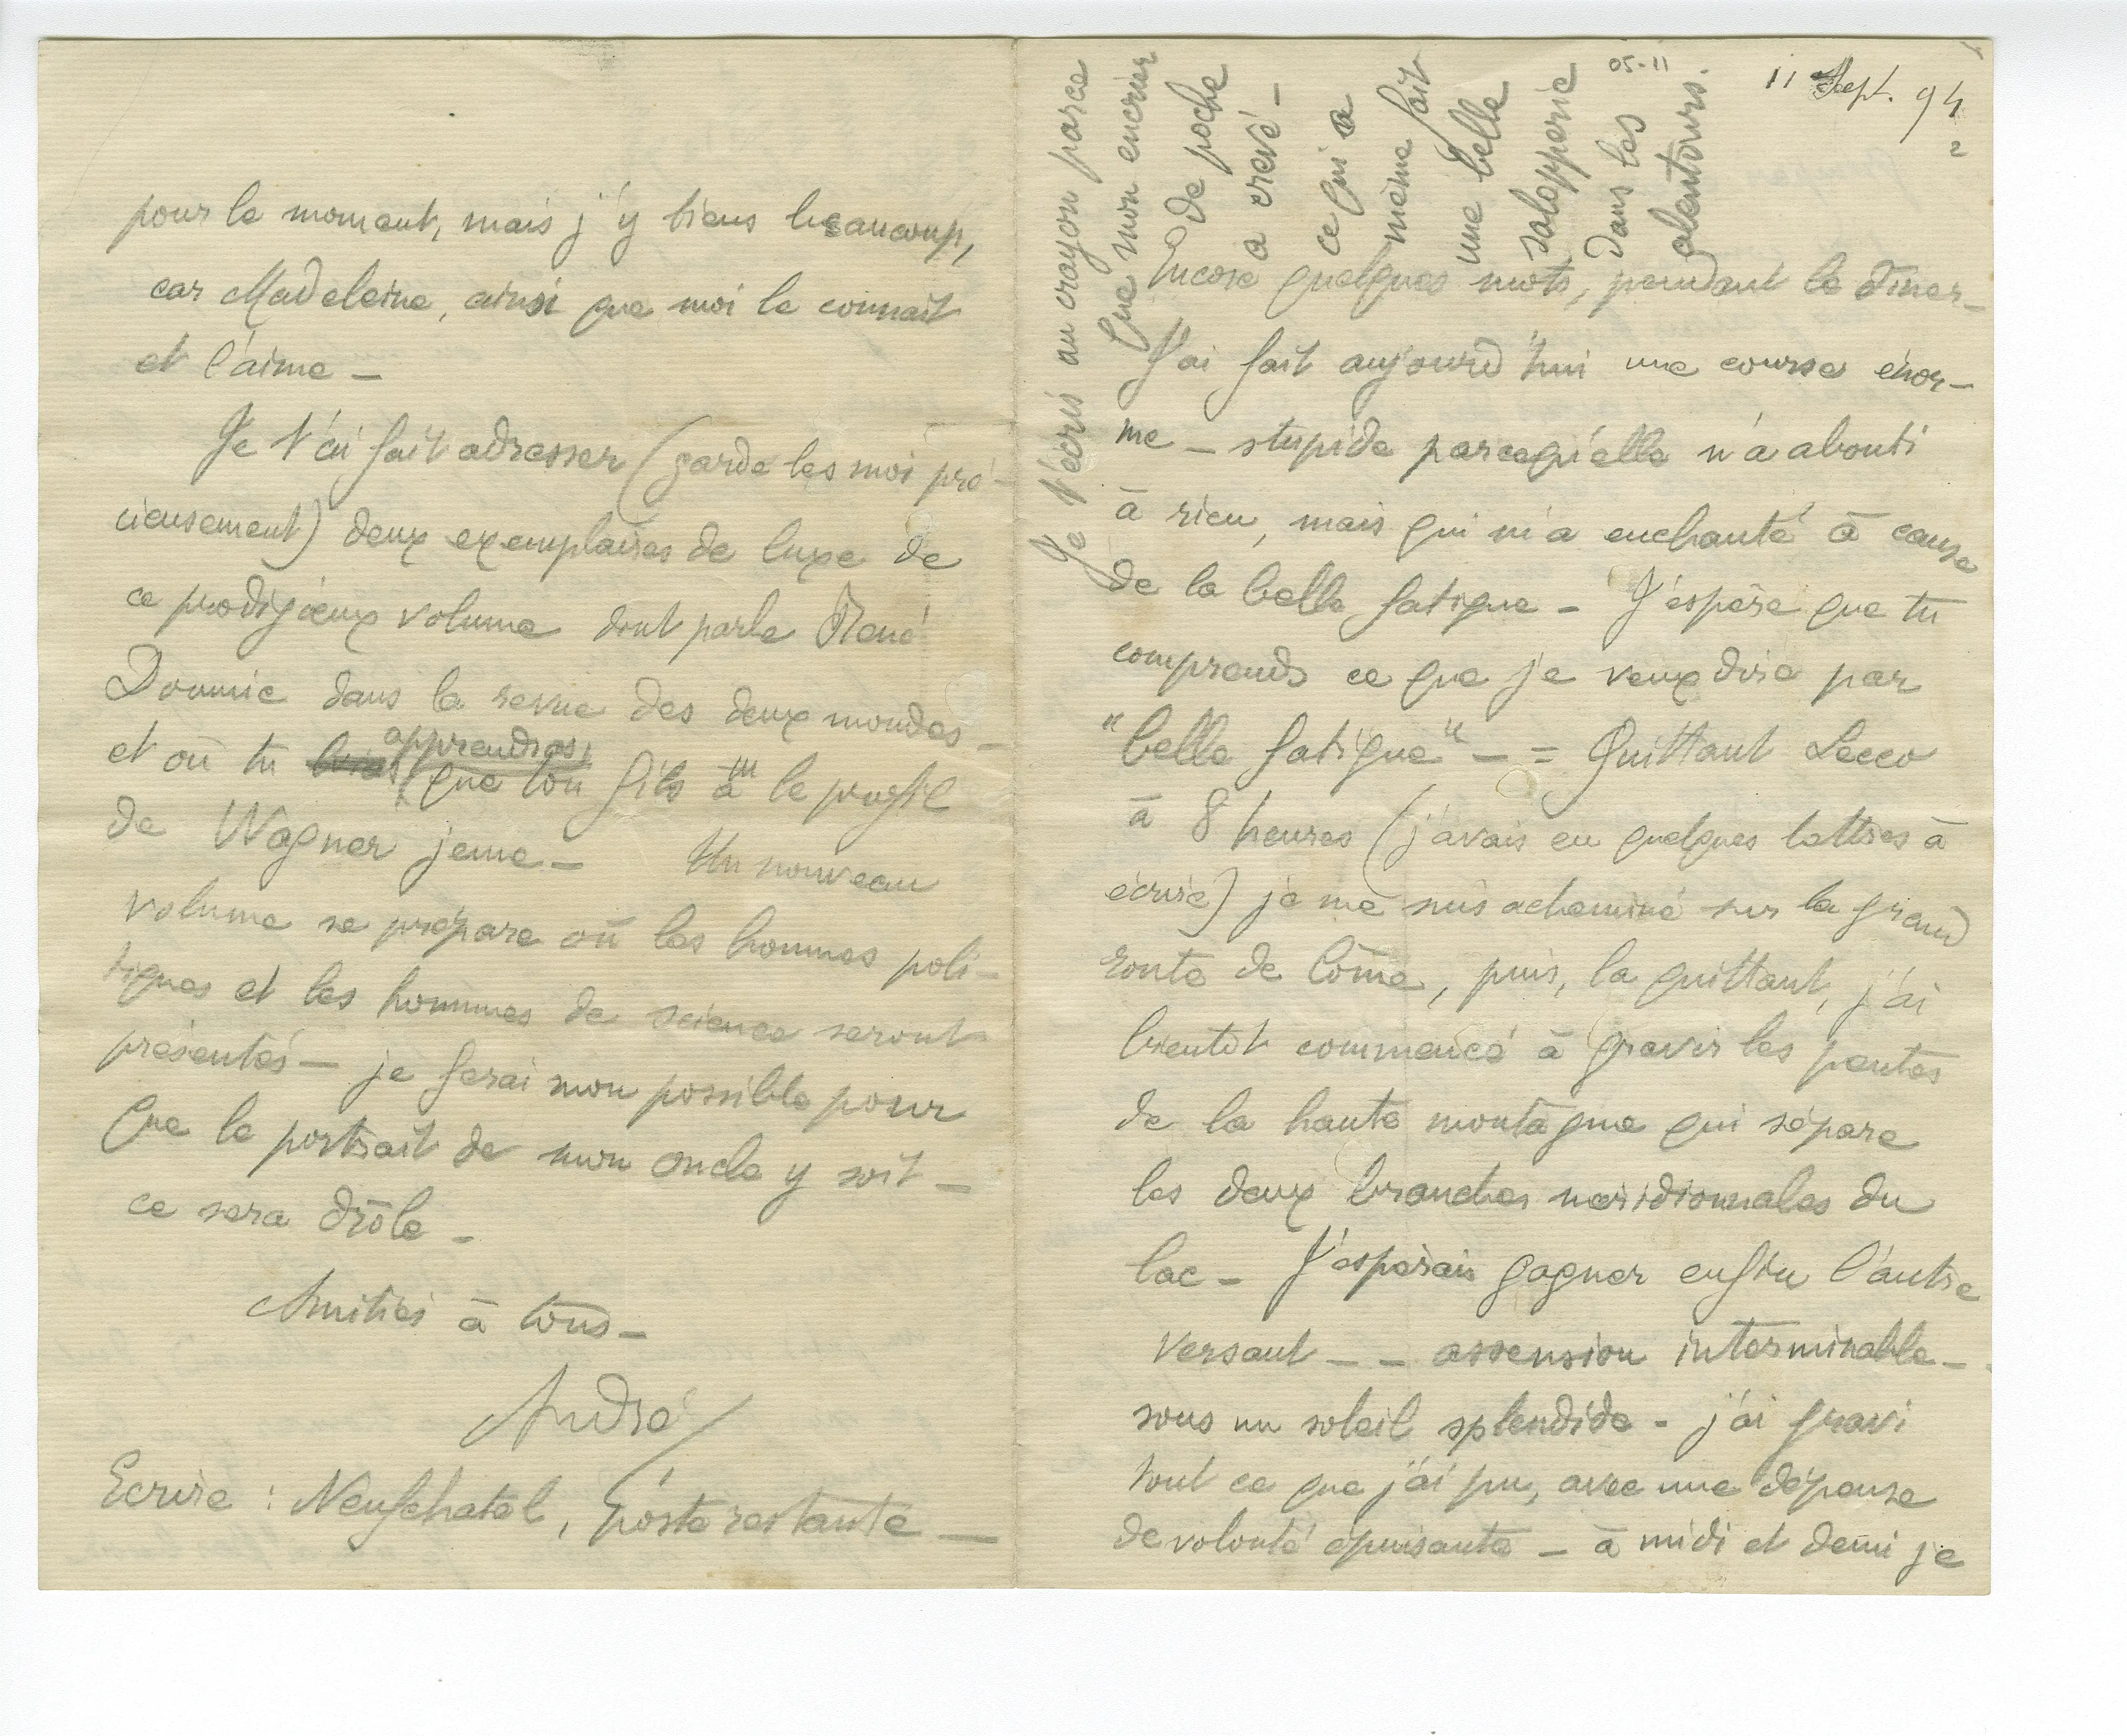 pour le moment, mais j'y tiens beaucoup,
car Madeleine, ainsi que moi le connait
et l'aime —
Je t'ai fait adresser (garde les moi pré-
cieusement) deux exemplaires de luxe de
ce prodigieux volume dont parle René
Doumic dans la revue des deux mondes —
et où tu apprendras
que ton fils à le profil
de Wagner jeune — Un nouveau
volume se prépare où les hommes poli-
tiques et les hommes de science seront
présentés — je ferai mon possible pour
que le portrait de mon oncle y soit —
ce sera drôle —
Amitiés à tous —
André
Ecrire : Neufchatel, poste restante —
05-11
11 Sept. 94
2
Je t'écris au crayon parce
que mon encrier
de poche
a crevé —
ce qui a
même fait
une belle
salopperie
dans les
alentours.
Encore quelques mots, pendant le dîner —
J'ai fait aujourd'hui une course énor-
me — stupide parcequ'elle n'a abouti
à rien, mais qui m'a enchanté à cause
de la belle fatigue — J'espère que tu
comprends ce que je veux dire par
"belle fatigue" — = Quittant Lecco
à 8 heures (j'avais eu quelques lettres à
écrire) je me suis acheminé sur la grand
route de Côme, puis, la quittant, j'ai
bientôt commencé à gravir les pentes
de la haute montagne qui sépare
les deux branches méridionales du
lac — J'espérais gagner enfin l'autre
versant — — ascension interminable —
sous un soleil splendide — j'ai gravi
tout ce que j'ai pu, avec une dépense
de volonté épuisante — à midi et demi je